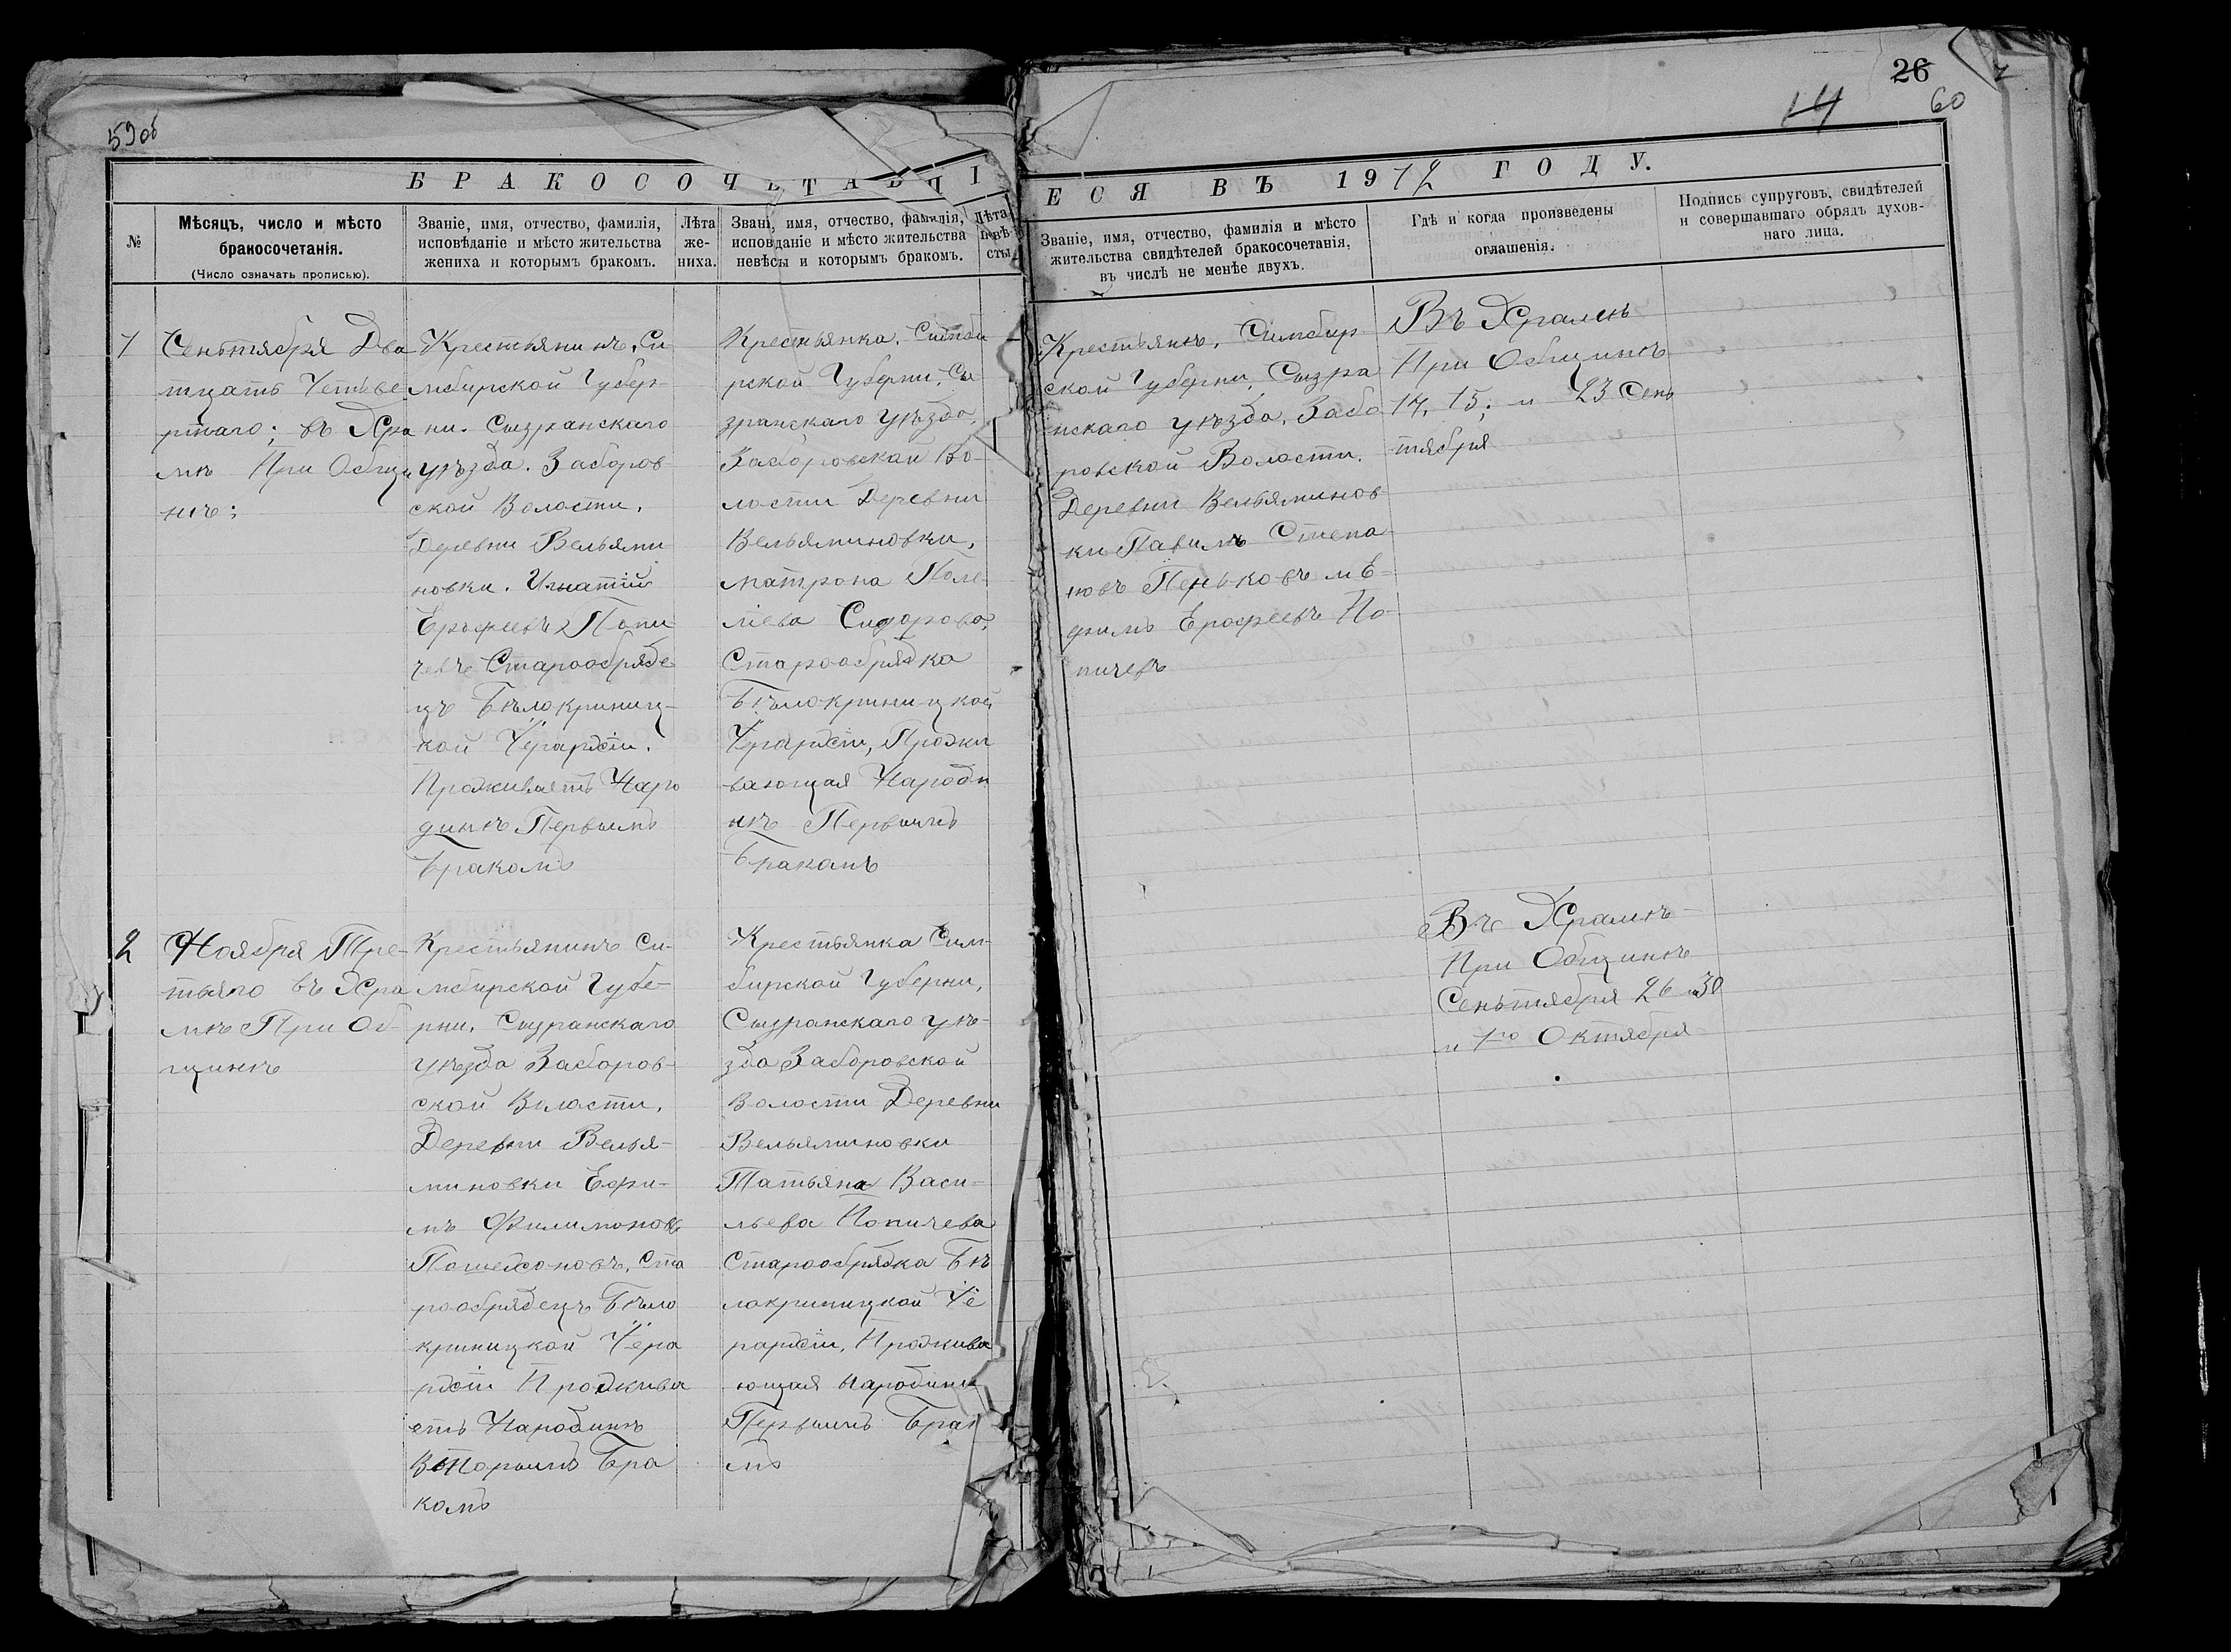 59об
26
14
60
БРАКОСОЧЕТАВШІ
ЕСЯ ВЪ 1912 ГОДУ.
№
Мѣсяцъ, число и мѣсто
бракосочетанія.
(Число означать прописью).
Званіе, имя, отчество, фамилія,
исповѣданіе и мѣсто жительства
жениха и которымъ бракомъ.
Лѣта
же-
ниха.
Званіе, имя, отчество, фамилія,
исповѣданіе и мѣсто жительства
невѣсты и которымъ бракомъ.
Лѣта
невѣ-
сты
Званіе, имя, отчество, фамилія и мѣсто
жительства свидѣтелей бракосочетанія,
въ числѣ не менѣе двухъ.
Гдѣ и когда произведены
оглашенія.
Подпись супруговъ, свидѣтелей
и совершавшаго обрядъ духов-
наго лица.
1
Сеньтября Два
тцать Четьве
ртаго; въ Хра
мѣ При Общи
нѣ;
Крестьянинъ, Си
мбирской Губер-
ни. Сызранскаго
уѣзда. Заборов-
ской Волости,
Деревни Вельями
новки. Игнатій
Ерофеевъ Попи
чевъ Старообряде
цъ Бѣлокриниц-
кой Ѵерархіи.
Проживаетъ Наро
динѣ Первымъ
Бракомъ
Крестьянка, Симби
рской Губерни, Сы
зранскаго уѣзда,
Заборовской Во-
лости Деревни
Вельяминовки,
матрона
Сидорова,
Старообрядка
Бѣлокриницкой
Ѵрархіи, Прожи
вающая Народи
нѣ Первымъ
Бракомъ
Крестьянѣ, Симбир
ской Губерни, Сызра
нскаго уѣзда, Забо
ровской Волости,
Деревни Вельяминов
ки Павилъ Степа-
новъ Пеньковъ и Е-
фимъ Ерофеевъ По-
пичевъ
Въ Храмѣ
При Общинѣ
14, 15; и 23 Сень
тября
2
Ноября Тре-
тьяго въ Хра
мѣ При Об-
щинѣ
Крестьянинъ Си-
мбирской Губе-
рни, Сызранскаго
уѣзда Заборов-
ской Волости,
Деревни Велья-
миновки Ефи-
мъ Филимоновъ
Ста
рообрядецъ Бѣло
криницкой Ѵера
рхіи Прожива
етъ Народинѣ
Вторымъ Бра
комъ
Крестьянка Сим-
бирской Губерни,
Сызранскаго уѣ-
зда Заборовской
Волости Деревни
Вельяминовки
Татьяна Васи-
льева Попичева
Старообрядка Бѣ
локриницкой Ѵе
рархіи, Прожива
ющая Народинѣ
Первымъ Брак
мъ
Въ Храмѣ
При Общинѣ
Сеньтября 26 и 30
и 1го Октября